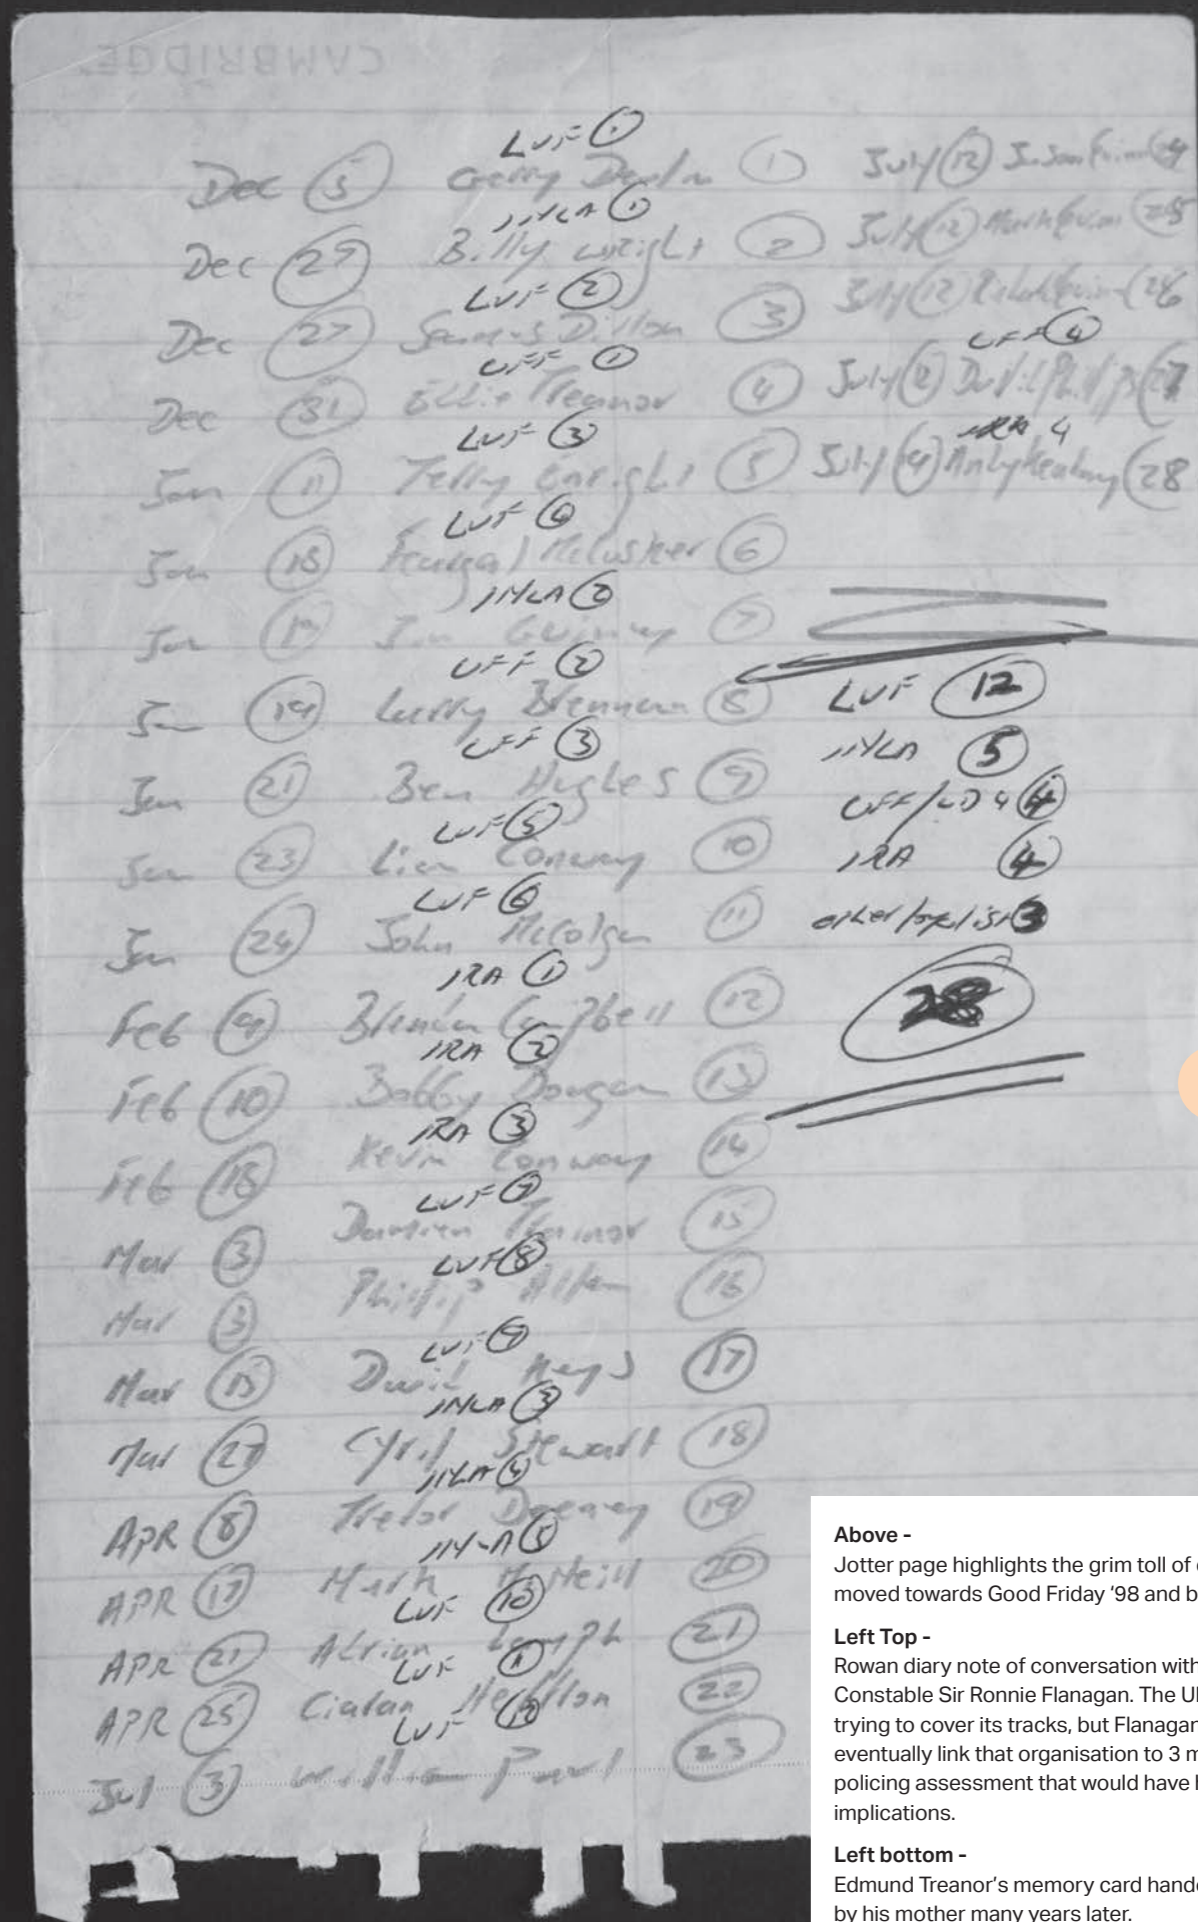 CAMBRIDGE
LVF 1
Dec 5 Gerry Devlin 1
INLA 1
Dec 27 Billy Wright 2
LVF 2
Dec 27 Seamus Dillon 3
UFF 1
Dec 31 Eddie Treanor 4
LVF 3
Jan 11 Terry Enright 5
LVF 4
Jan 18 Feargal McCusker 6
INLA 2
Jan 19 Jim Guiney 7
UFF 2
Jan 19 Larry Brennan 8
UFF 3
Jan 21 Ben Hughes 9
LVF 5
Jan 23 Liam Conway 10
LVF 6
Jan 24 John McColgan 11
IRA 1
Feb 9 Brendan Campbell 12
IRA 2
Feb 10 Bobby Dougan 13
IRA 3
Feb 18 Kevin Conway 14
LVF 7
Mar 3 Damien Trainor 15
LVF 8
Mar 3 Phillip Allen 16
LVF 9
Mar 15 David Keys 17
INLA 3
Mar 27 Cyril Stewart 18
INLA 4
APR 8 Trevor Deeney 19
INLA 5
APR 17 Mark McNeill 20
LVF 10
APR 21 Adrian Lamph 21
LVF 11
APR 25 Ciaran Heffron 22
LVF 12
Jul 3 William 23
July 12 Jason Quinn 24
July 12 Mark Quinn 25
July 12 Richard Quinn 26
UFF 4
July David Phillips 27
IRA 4
July Andy Kearney 28
LVF 12
INLA 5
UFF/ 4
IRA 4
other loyalist 3
28
Above -
Jotter page highlights the grim toll of
moved towards Good Friday '98 and
Left Top -
Rowan diary note of conversation with
Constable Sir Ronnie Flanagan. The
trying to cover its tracks, but Flanagan
eventually link that organisation to 3
policing assessment that would have
implications.
Left bottom -
Edmund Treanor's memory card
by his mother many years later.